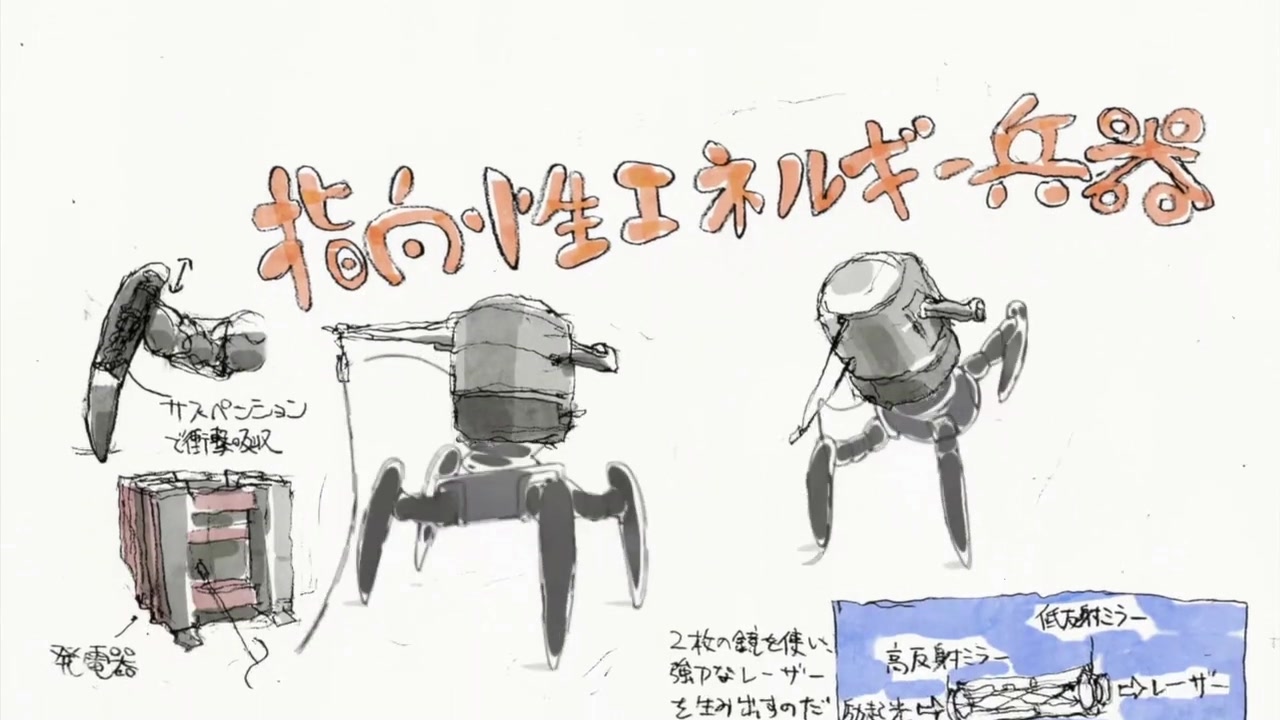 指向性エネルギー兵器
サスペンション
で衝撃吸収
発電器
2枚の鏡を使い、
強力なレーザー
を生み出すのだ
低反射ミラー
高反射ミラー
励起光⇨
⇨レーザー